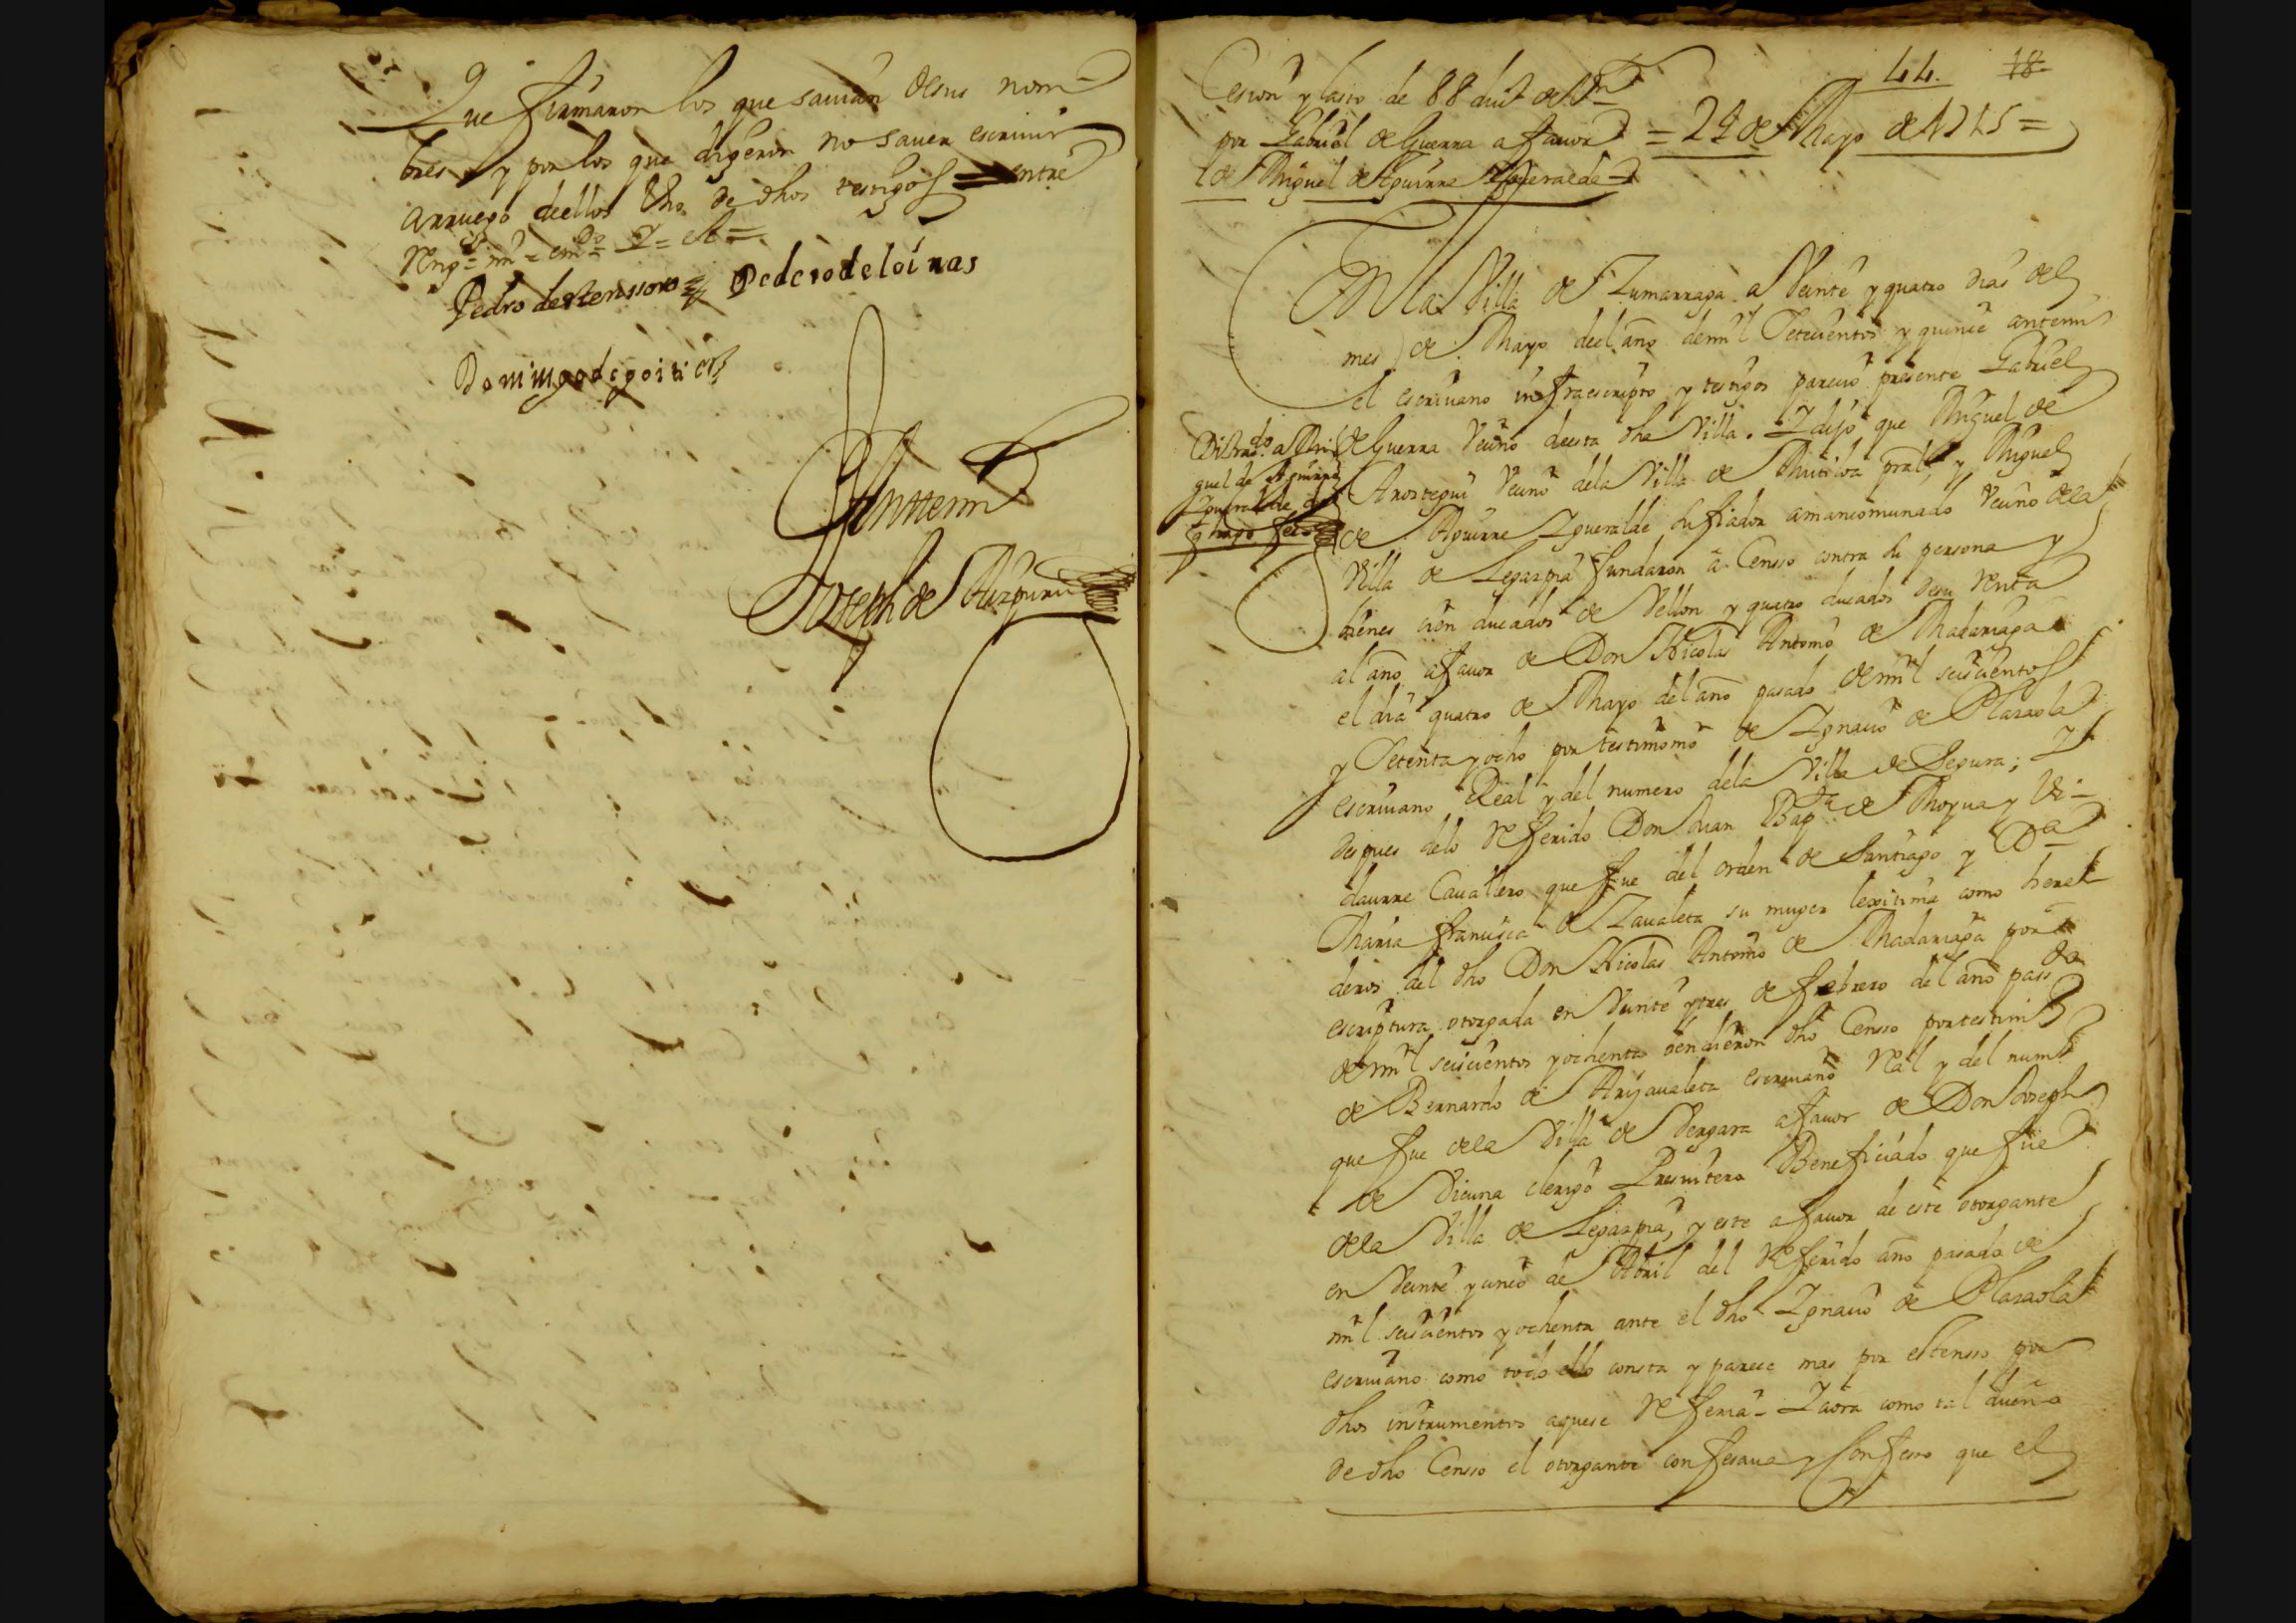 Que firmaron los que sauian de sus nom
bres y por los que dixeron no sauer escriuir
arruego de ellos Vno de dhos testigos = entre
Reng.s = mi = em.do = Y = et =
Pedro de Atenssoro = Pedro de loinas
Domingo de goitia
Antemi
Joseph de Aizpuru
44. 18
Cesion y lasto de 88 duc.s de Vn
por Gabriel de Guerra a fauor
de Miguel de Aguirre Ygueralde
= 24 de Mayo de 1715 =
En la Villa de Zumarraga a Veinte y quatro dias del
mes de Mayo de el año de mil Setecientos y quince antemi
el escriuano infraescripto y testigos parecio presente Gabriel
de Guerra Vecino de esta dha Villa. Y dijo que Miguel de
Aroztegui Vecino dela Villa de Mutiloa pral, y Miguel
de Aguirre Ygueralde su fiador amancomunado Vecino dela
Villa de Legazpia fundaron a Censso contra su persona y
bienes cien ducados de Vellon y quatro ducados de su renta
al año a fauor de Don Nicolas Antonio de Madariaga
el dia quatro de Mayo del año pasado de mil seiscientos
y Setenta y ocho por testimonio de Ygnacio de Plazaola
escriuano Real y del numero dela Villa de Segura; Y
despues delo Referido Don Juan Bap.ta de Moyua y Vi-
daurre Cauallero que fue del orden de Santiago y D.a
Maria francisca de Zaualeta su muger lexitima como here
deros del dho Don Nicolas Antonio de Madariaga por
escriptura otorgada en Veinte y tres de febrero del año pass.do
de mil seiscientos y ochenta vendieron dho Censso por testim.o
de Bernardo de Arijaualeta escriuano Real y del num.o
que fue dela Villa de Vergara a fauor de Don Joseph
de Vicuna clerigo Presuitero Beneficiado que fue
dela Villa de Legazpia, y este a fauor de este otorgante
en Veinte y cinco de Abril del Referido año pasado de
mil seiscientos y ochenta ante el dho Ygnacio de Plazaola
escriuano como todo ello consta y parece mas por estensso por
dhos instrumentos aquese Referia - Y aora como tal dueño
de dho Censso el otorgante confesaua y Confeso que el
do a Mi
guel de Aguirre
Ygueralde